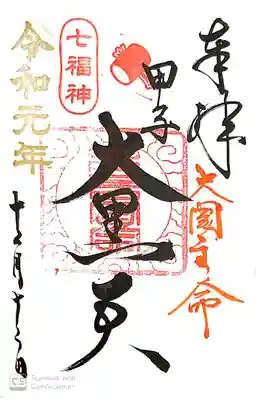 奉拝
大国主命
甲子
大黒天
七福神
令和元年
十二月十二日
CS Scanned with
CamScanner